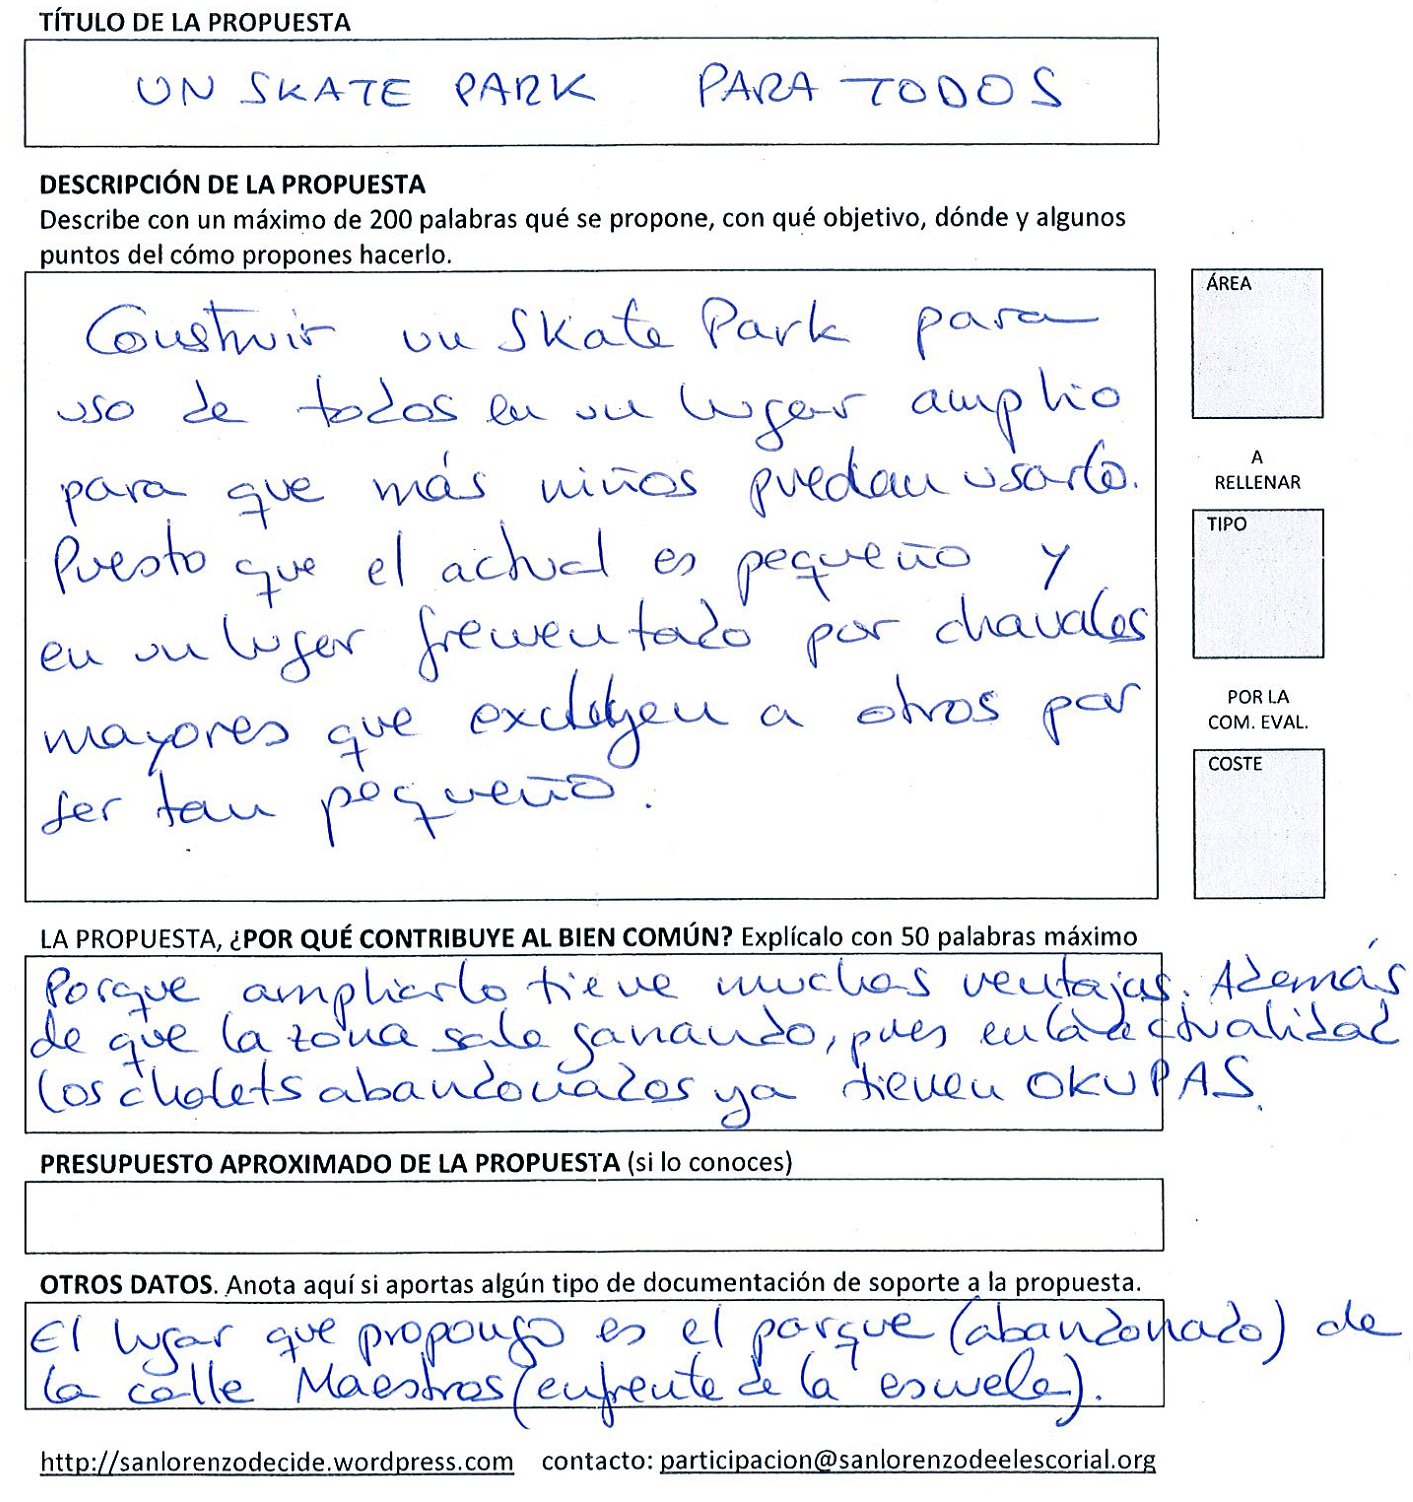 TÍTULO DE LA PROPUESTA
UN SKATE PARK PARA TODOS
DESCRIPCIÓN DE LA PROPUESTA
Describe con un máximo de 200 palabras qué se propone, con qué objetivo, dónde y algunos
puntos del cómo propones hacerlo.
Construir un Skate Park para
uso de todos en un lugar amplio
para que más niños puedan usarlo.
Puesto que el actual es pequeño y
en un lugar frecuentado por chavales
mayores que excluyen a otros por
ser tan pequeño.
ÁREA
A
RELLENAR
TIPO
POR LA
COM. EVAL.
COSTE
LA PROPUESTA, ¿POR QUÉ CONTRIBUYE AL BIEN COMÚN? Explícalo con 50 palabras máximo
Porque ampliarlo tiene muchas ventajas. Además
de que la zona sale ganando, pues en la actualidad
los chalets abandonados ya tienen OKUPAS.
PRESUPUESTO APROXIMADO DE LA PROPUESTA (si lo conoces)
OTROS DATOS. Anota aquí si aportas algún tipo de documentación de soporte a la propuesta.
El lugar que propongo es el parque (abandonado) de
la calle Maestros (enfrente de la escuela).
http://sanlorenzodecide.wordpress.com contacto: participacion@sanlorenzodeelescorial.org